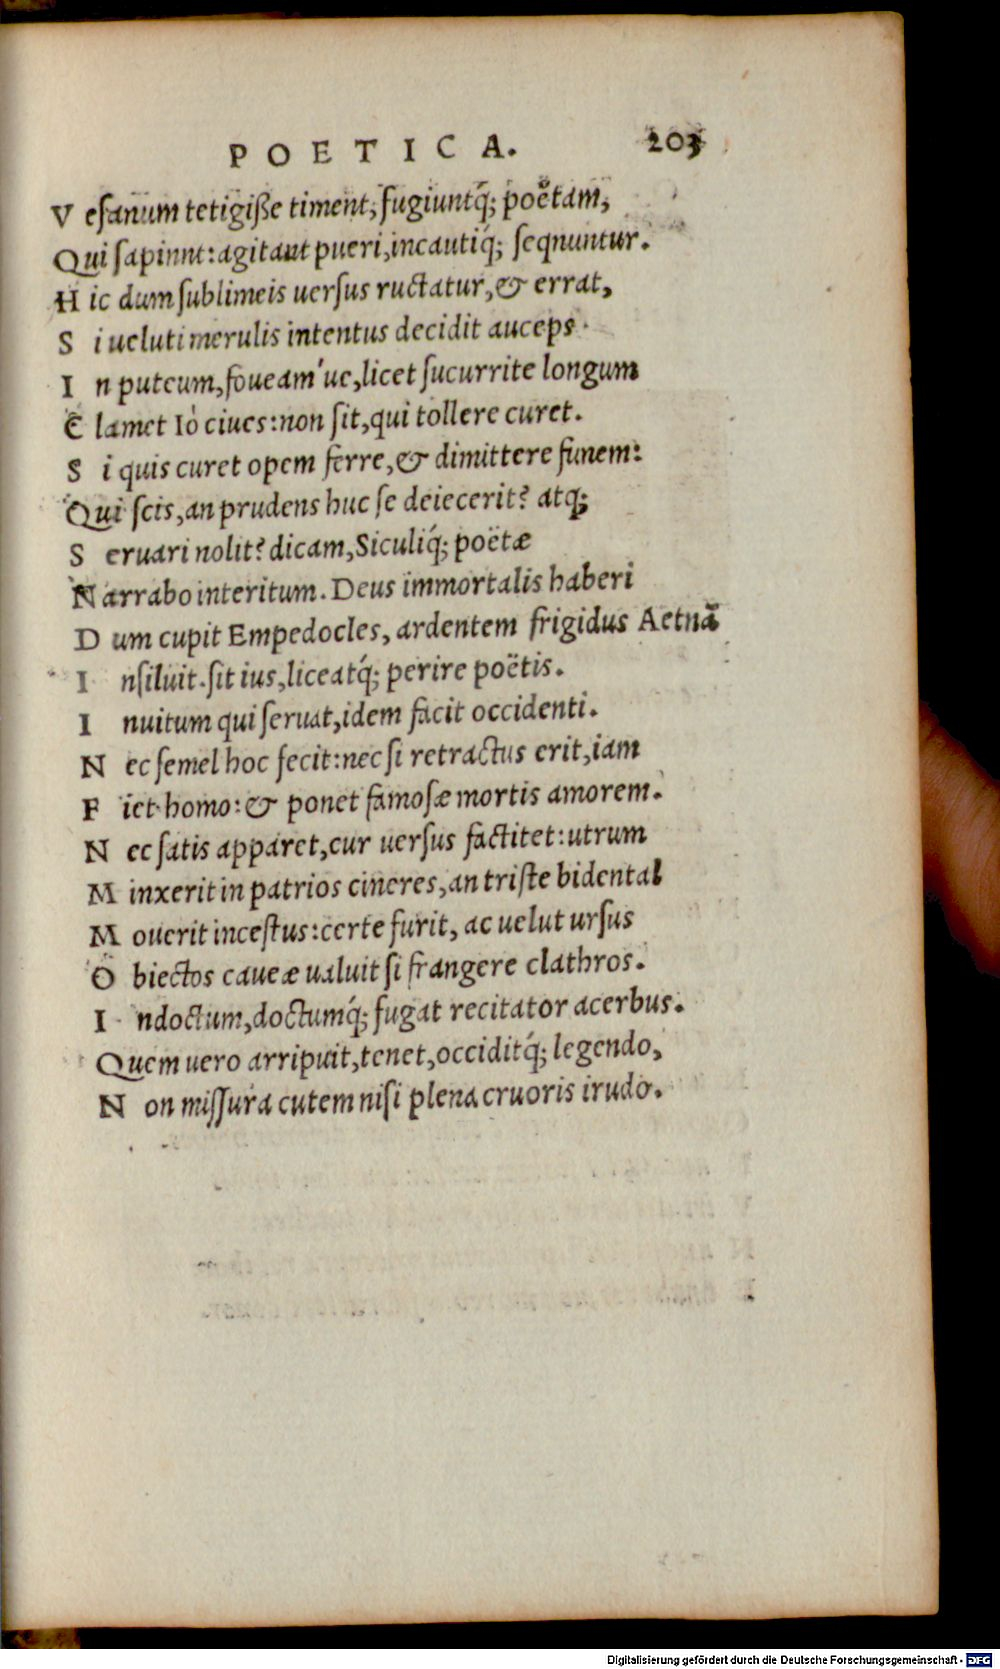 POETICA. 203
V esanum tetigiße timent, fugiuntq́; poëtam,
Qui sapinnt: agitant pueri, incautiq́; seqnuntur.
H ic dum sublimeis uersus ructatur, & errat,
S i ueluti merulis intentus decidit auceps
I n puteum, foueam'ue, licet sucurrite longum
C lamet Iò ciues: non sit, qui tollere curet.
S i quis curet opem ferre, & dimittere funem:
Qui scis, an prudens huc se deiecerit? atq;
S eruari nolit? dicam, Siculiq́; poëtæ
N arrabo interitum. Deus immortalis haberi
D um cupit Empedocles, ardentem frigidus Aetnā
I nsiluit. sit ius, liceatq́; perire poëtis.
I nuitum qui seruat, idem facit occidenti.
N ec semel hoc fecit: nec si retractus erit, iam
F iet homo: & ponet famosæ mortis amorem.
N ec satis apparet, cur uersus factitet: utrum
M inxerit in patrios cineres, an triste bidental
M ouerit incestus: certe furit, ac uelut ursus
O biectos caueæ ualuit si frangere clathros.
I ndoctum, doctumq́; fugat recitator acerbus.
Quem uero arripuit, tenet, occiditq́; legendo,
N on missura cutem nisi plena cruoris irudo.
Digitalisierung gefördert durch die Deutsche Forschungsgemeinschaft - DFG